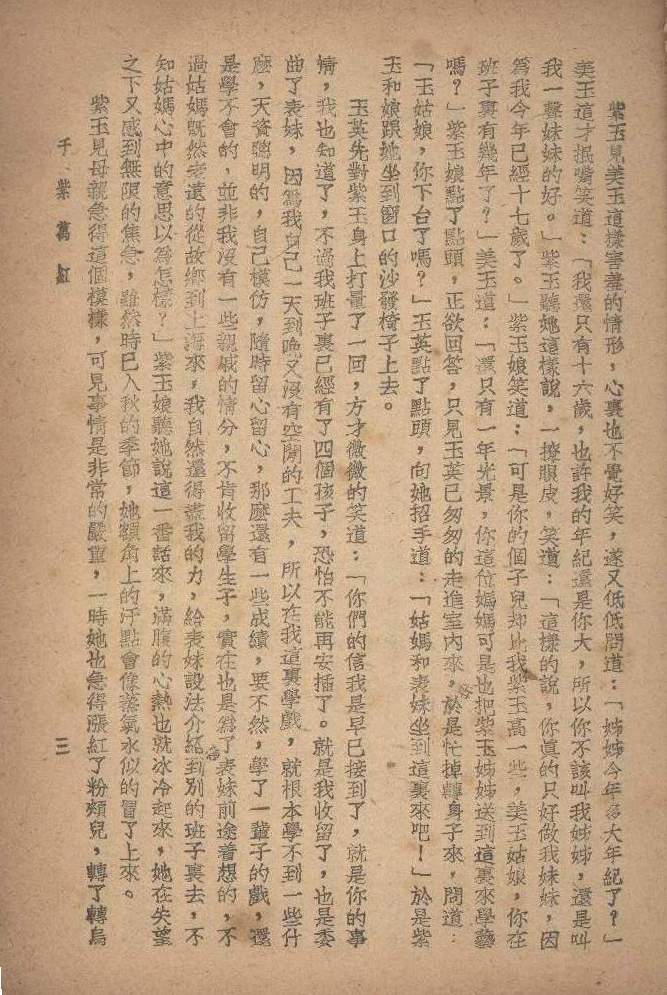 紫玉見美玉這樣害羞的情形，心裏也不覺好笑，遂又低低問道：「姊姊今年多大年紀了？」
美玉這才抿嘴笑道：「我還只有十六歲，也許我的年紀還是你大，所以你不該叫我姊姊，還是叫
我一聲妹妹的好。」紫玉聽她這樣說，一撩眼皮，笑道：「這樣的說，你眞的只好做我妹妹，因
爲我今年已經十七歲了。」紫玉娘笑道：「可是你的個子兒却比我紫玉高一些，美玉姑娘，你在
班子裏有幾年了？」美玉道：「還只有一年光景，你這位媽媽可是也把紫玉姊姊送到這裏來學藝
嗎？」紫玉娘點了點頭，正欲回答，只見玉英已匆匆的走進室內來，於是忙掉轉身子來，問道：
「玉姑娘，你下台了嗎？」玉英點了點頭，向她招手道：「姑媽和表妹坐到這裏來吧！」於是紫
玉和娘跟她坐到窗口的沙發椅子上去。
玉英先對紫玉身上打量了一回，方才微微的笑道：「你們的信我是早已接到了，就是你的事
情，我也知道了，不過我班子裏已經有了四個孩子，恐怕不能再安插了。就是我收留了，也是委
曲了表妹，因爲我自己一天到晚又沒有空閒的工夫，所以在我這裏學戲，就根本學不到一些什
麽，天資聰明的，自己模仿，隨時留心留心，那麽還有一些成績，要不然，學了一輩子的戲，還
是學不會的，並非我沒有一些親戚的情分，不肯收留學生子，實在也是爲了表妹前途着想的，不
過姑媽旣然老遠的從故鄉到上海來，我自然還得盡我的力，給表妹設法介紹到別的班子裏去，不
知姑媽心中的意思以爲怎樣？」紫玉娘聽她說這一番話來，滿腹的心熱也就冰冷起來，她在失望
之下又感到無限的焦急，雖然時已入秋的季節，她額角上的汗點會像蒸氣水似的冒了上來。
紫玉見母親急得這個模樣，可見事情是非常的嚴重，一時她也急得漲紅了粉頰兒，轉了轉烏
千紫萬紅
三